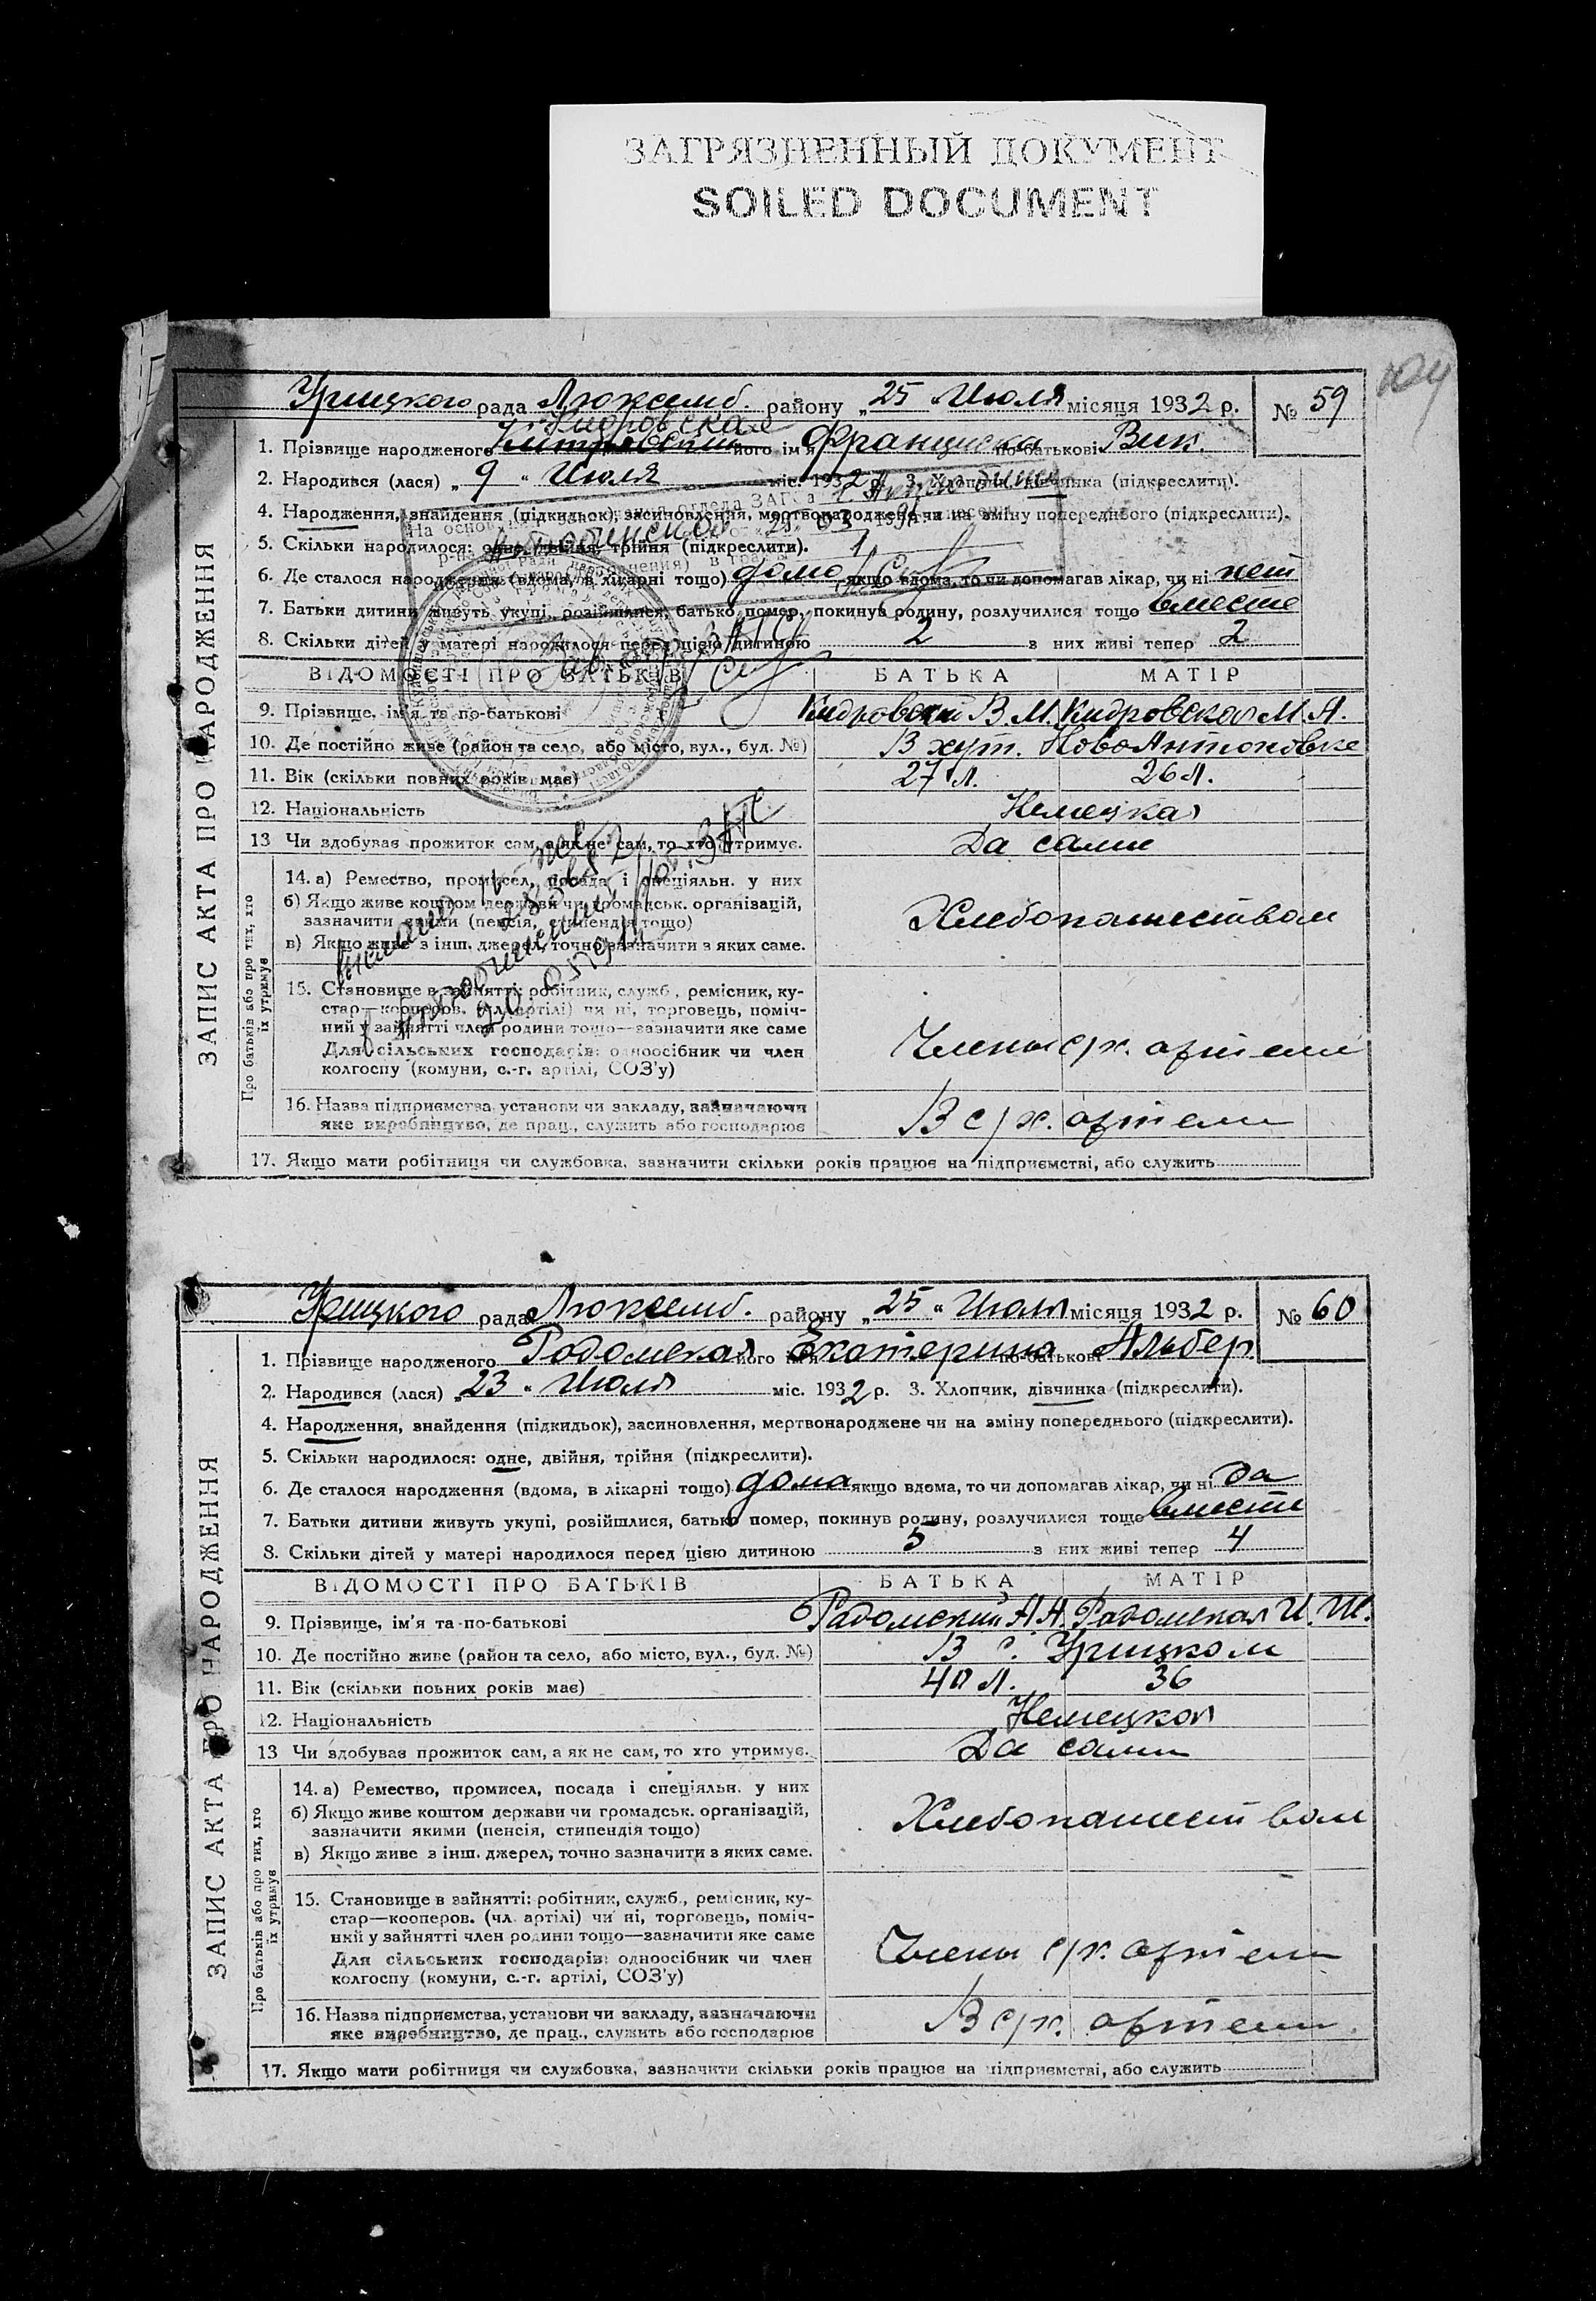 ЗАГРЯЗНЕННЫЙ ДОКУМЕНТ
SOILED DOCUMENT
104
Урицкого рада Люксемб. району „25 “ Июля місяця 1932 р. № 59
Кидровская
1. Прізвище народженого його ім'я Франциска по-батькові Вик.
2. Народився (лася) „9 “ Июля міс. 1932 р. 3. Хлопчик, дівчинка (підкреслити).
4. Народження, знайдення (підкидьок), засиновлення, мертвонароджене чи на зміну попереднього (підкреслити).
5. Скільки народилося: одне, двійня, трійня (підкреслити). 1
6. Де сталося народження (вдома, в лікарні тощо) дома якщо вдома, то чи допомагав лікар, чи ні нет
7. Батьки дитини живуть укупі, розійшлися, батько помер, покинув родину, розлучилися тощо вместе
8. Скільки дітей у матері народилося перед цією дитиною 2 з них живі тепер 2
ВІДОМОСТІ ПРО БАТЬКІВ БАТЬКА МАТІР
9. Прізвище, ім'я та по-батькові Кидровский В.М. Кидровская М.А.
10. Де постійно живе (район та село, або місто, вул., буд. №) В хут. НовоАнтоновке
11. Вік (скільки повних років має) 27 л. 26 л.
12. Національність Немецкая
13 Чи здобуває прожиток сам, а як не сам, то хто утримує. Да сами
14. а) Ремество, промисел, посада і спеціяльн. у них
б) Якщо живе коштом держави чи громадськ. організацій,
зазначити якими (пенсія, стипендія тощо) Хлебопашеством
в) Якщо живе з інш. джерел, точно зазначити з яких саме.
15. Становище в зайнятті: робітник, служб., ремісник, ку-
стар—кооперов. (чл. артілі) чи ні, торговець, поміч-
ний у зайнятті член родини тощо—зазначити яке саме
Для сільських господарів: одноосібник чи член Члены с/х. артели
колгоспу (комуни, с.-г. артілі, СОЗ'у)
16. Назва підприємства, установи чи закладу, зазначаючи
яке виробництво, де прац., служить або господарює В с/х. артели
17. Якщо мати робітниця чи службовка, зазначити скільки років працює на підприємстві, або служить
ЗАПИС АКТА ПРО НАРОДЖЕННЯ
Про батьків або про тих, хто
їх утримує
Урицкого рада Люксемб. району „25 “ Июля місяця 1932 р. № 60
1. Прізвище народженого Родомская його ім'я Екатерина по-батькові Альбер.
2. Народився (лася) „23 “ Июля міс. 1932 р. 3. Хлопчик, дівчинка (підкреслити).
4. Народження, знайдення (підкидьок), засиновлення, мертвонароджене чи на зміну попереднього (підкреслити).
5. Скільки народилося: одне, двійня, трійня (підкреслити).
6. Де сталося народження (вдома, в лікарні тощо) дома якщо вдома, то чи допомагав лікар, чи ні да
7. Батьки дитини живуть укупі, розійшлися, батько помер, покинув родину, розлучилися тощо вместе
8. Скільки дітей у матері народилося перед цією дитиною 5 з них живі тепер 4
ВІДОМОСТІ ПРО БАТЬКІВ БАТЬКА МАТІР
9. Прізвище, ім'я та по-батькові Радомский А.А. Радомская И. Ш.
10. Де постійно живе (район та село, або місто, вул., буд. №) В с. Урицком
11. Вік (скільки повних років має) 40 л. 36
12. Національність Немецкая
13 Чи здобуває прожиток сам, а як не сам, то хто утримує. Да сами
14. а) Ремество, промисел, посада і спеціяльн. у них
б) Якщо живе коштом держави чи громадськ. організацій,
зазначити якими (пенсія, стипендія тощо) Хлебопашеством
в) Якщо живе з інш. джерел, точно зазначити з яких саме.
15. Становище в зайнятті: робітник, служб., ремісник, ку-
стар—кооперов. (чл. артілі) чи ні, торговець, поміч-
ний у зайнятті член родини тощо—зазначити яке саме
Для сільських господарів: одноосібник чи член Члены с/х. артели
колгоспу (комуни, с.-г. артілі, СОЗ'у)
16. Назва підприємства, установи чи закладу, зазначаючи
яке виробництво, де прац., служить або господарює В с/х. артели
17. Якщо мати робітниця чи службовка, зазначити скільки років працює на підприємстві, або служить
ЗАПИС АКТА ПРО НАРОДЖЕННЯ
Про батьків або про тих, хто
їх утримує